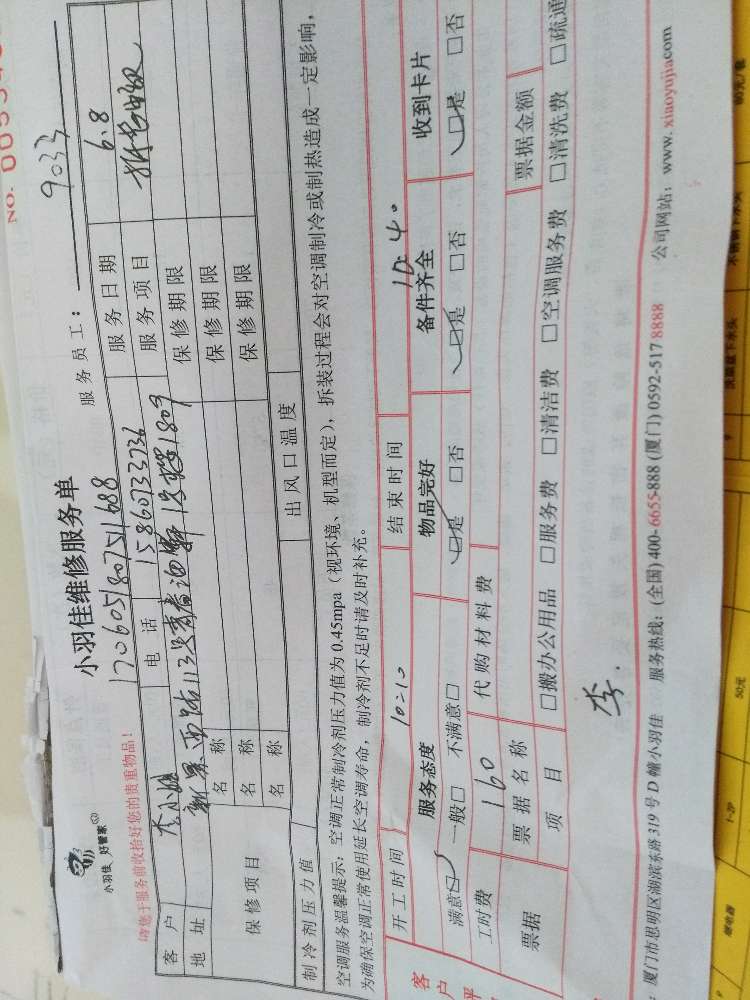 NO. 00
小羽佳 好管家
小羽佳维修服务单
服务员工： 9033
请您于服务前收拾好您的贵重物品！
170605180751688
客户 李小姐 电话 15860733736 服务日期 6.8
地址 新景西路113 1809 服务项目
保修项目 名称 保修期限
名称 保修期限
名称 保修期限
制冷剂压力值 出风口温度
空调服务温馨提示：空调正常制冷剂压力值为0.45mpa（视环境、机型而定），拆装过程会对空调制冷或制热造成一定影响，
为确保空调正常使用延长空调寿命，制冷剂不足时请及时补充。
开工时间 10:10 结束时间 10:40
客户评 服务态度 物品完好 备件齐全 收到卡片
满意☑ 一般□ 不满意□ ☑是 □否 ☑是 □否 ☑是 □否
工时费 160 代购材料费
票据 票据名称 票据金额
项目 □搬办公用品 □服务费 □清洁费 □空调服务费 □清洗费 □疏通
李.
厦门市思明区湖滨东路319号D幢小羽佳 服务热线：(全国)400-6655-888 (厦门)0592-517 8888 公司网站：www.xiaoyujia.com
继电器 1-2P 50元 洗脸盆下水头 不锈钢下水头 60元/套